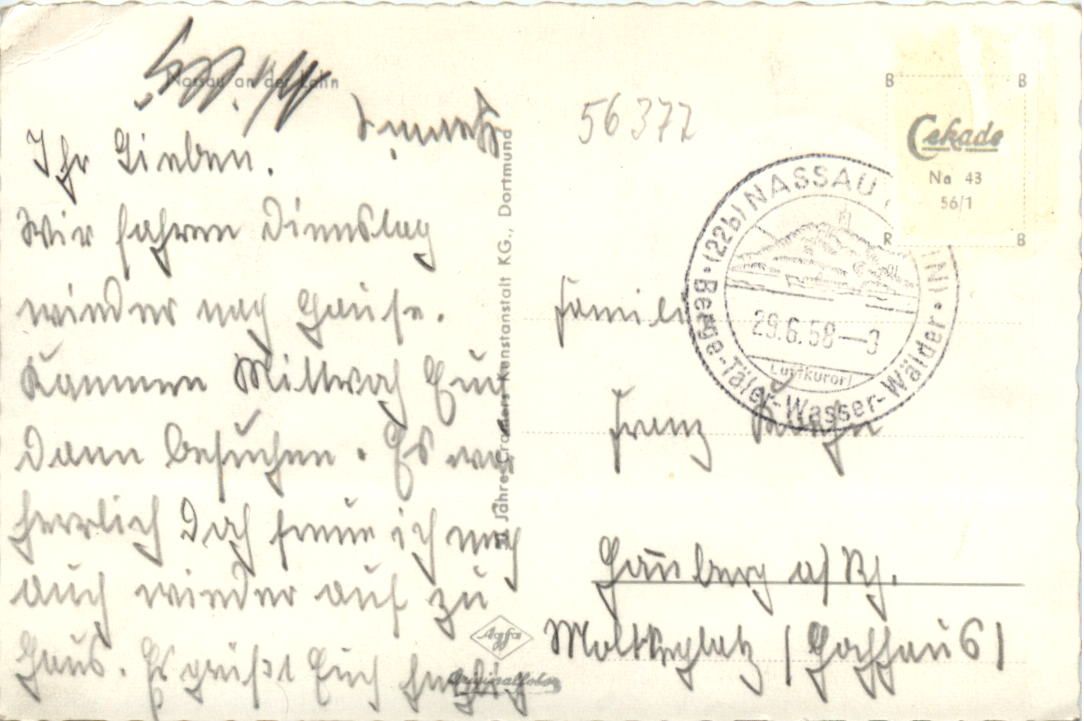 Nassau an der Lahn
56377
Ihr Lieben.
Wir fahren Dienstag
wieder nach Hause.
Kommen Mittwoch Euch
dann besuchen. Es war
herrlich doch freue ich mich
auch wieder auf zu
Haus. Es grüßt Euch
Jahre Cramers Kunstanstalt KG., Dortmund
Agfa
Originalfoto
B B
Cekade
Na 43
56/1
R B
(22b) NASSAU
29.6.58
Luftkurort
Berge-Täler-Wasser-Wälder
Familie
Franz
a/Rh.
Moltkeplatz (Hochhaus)